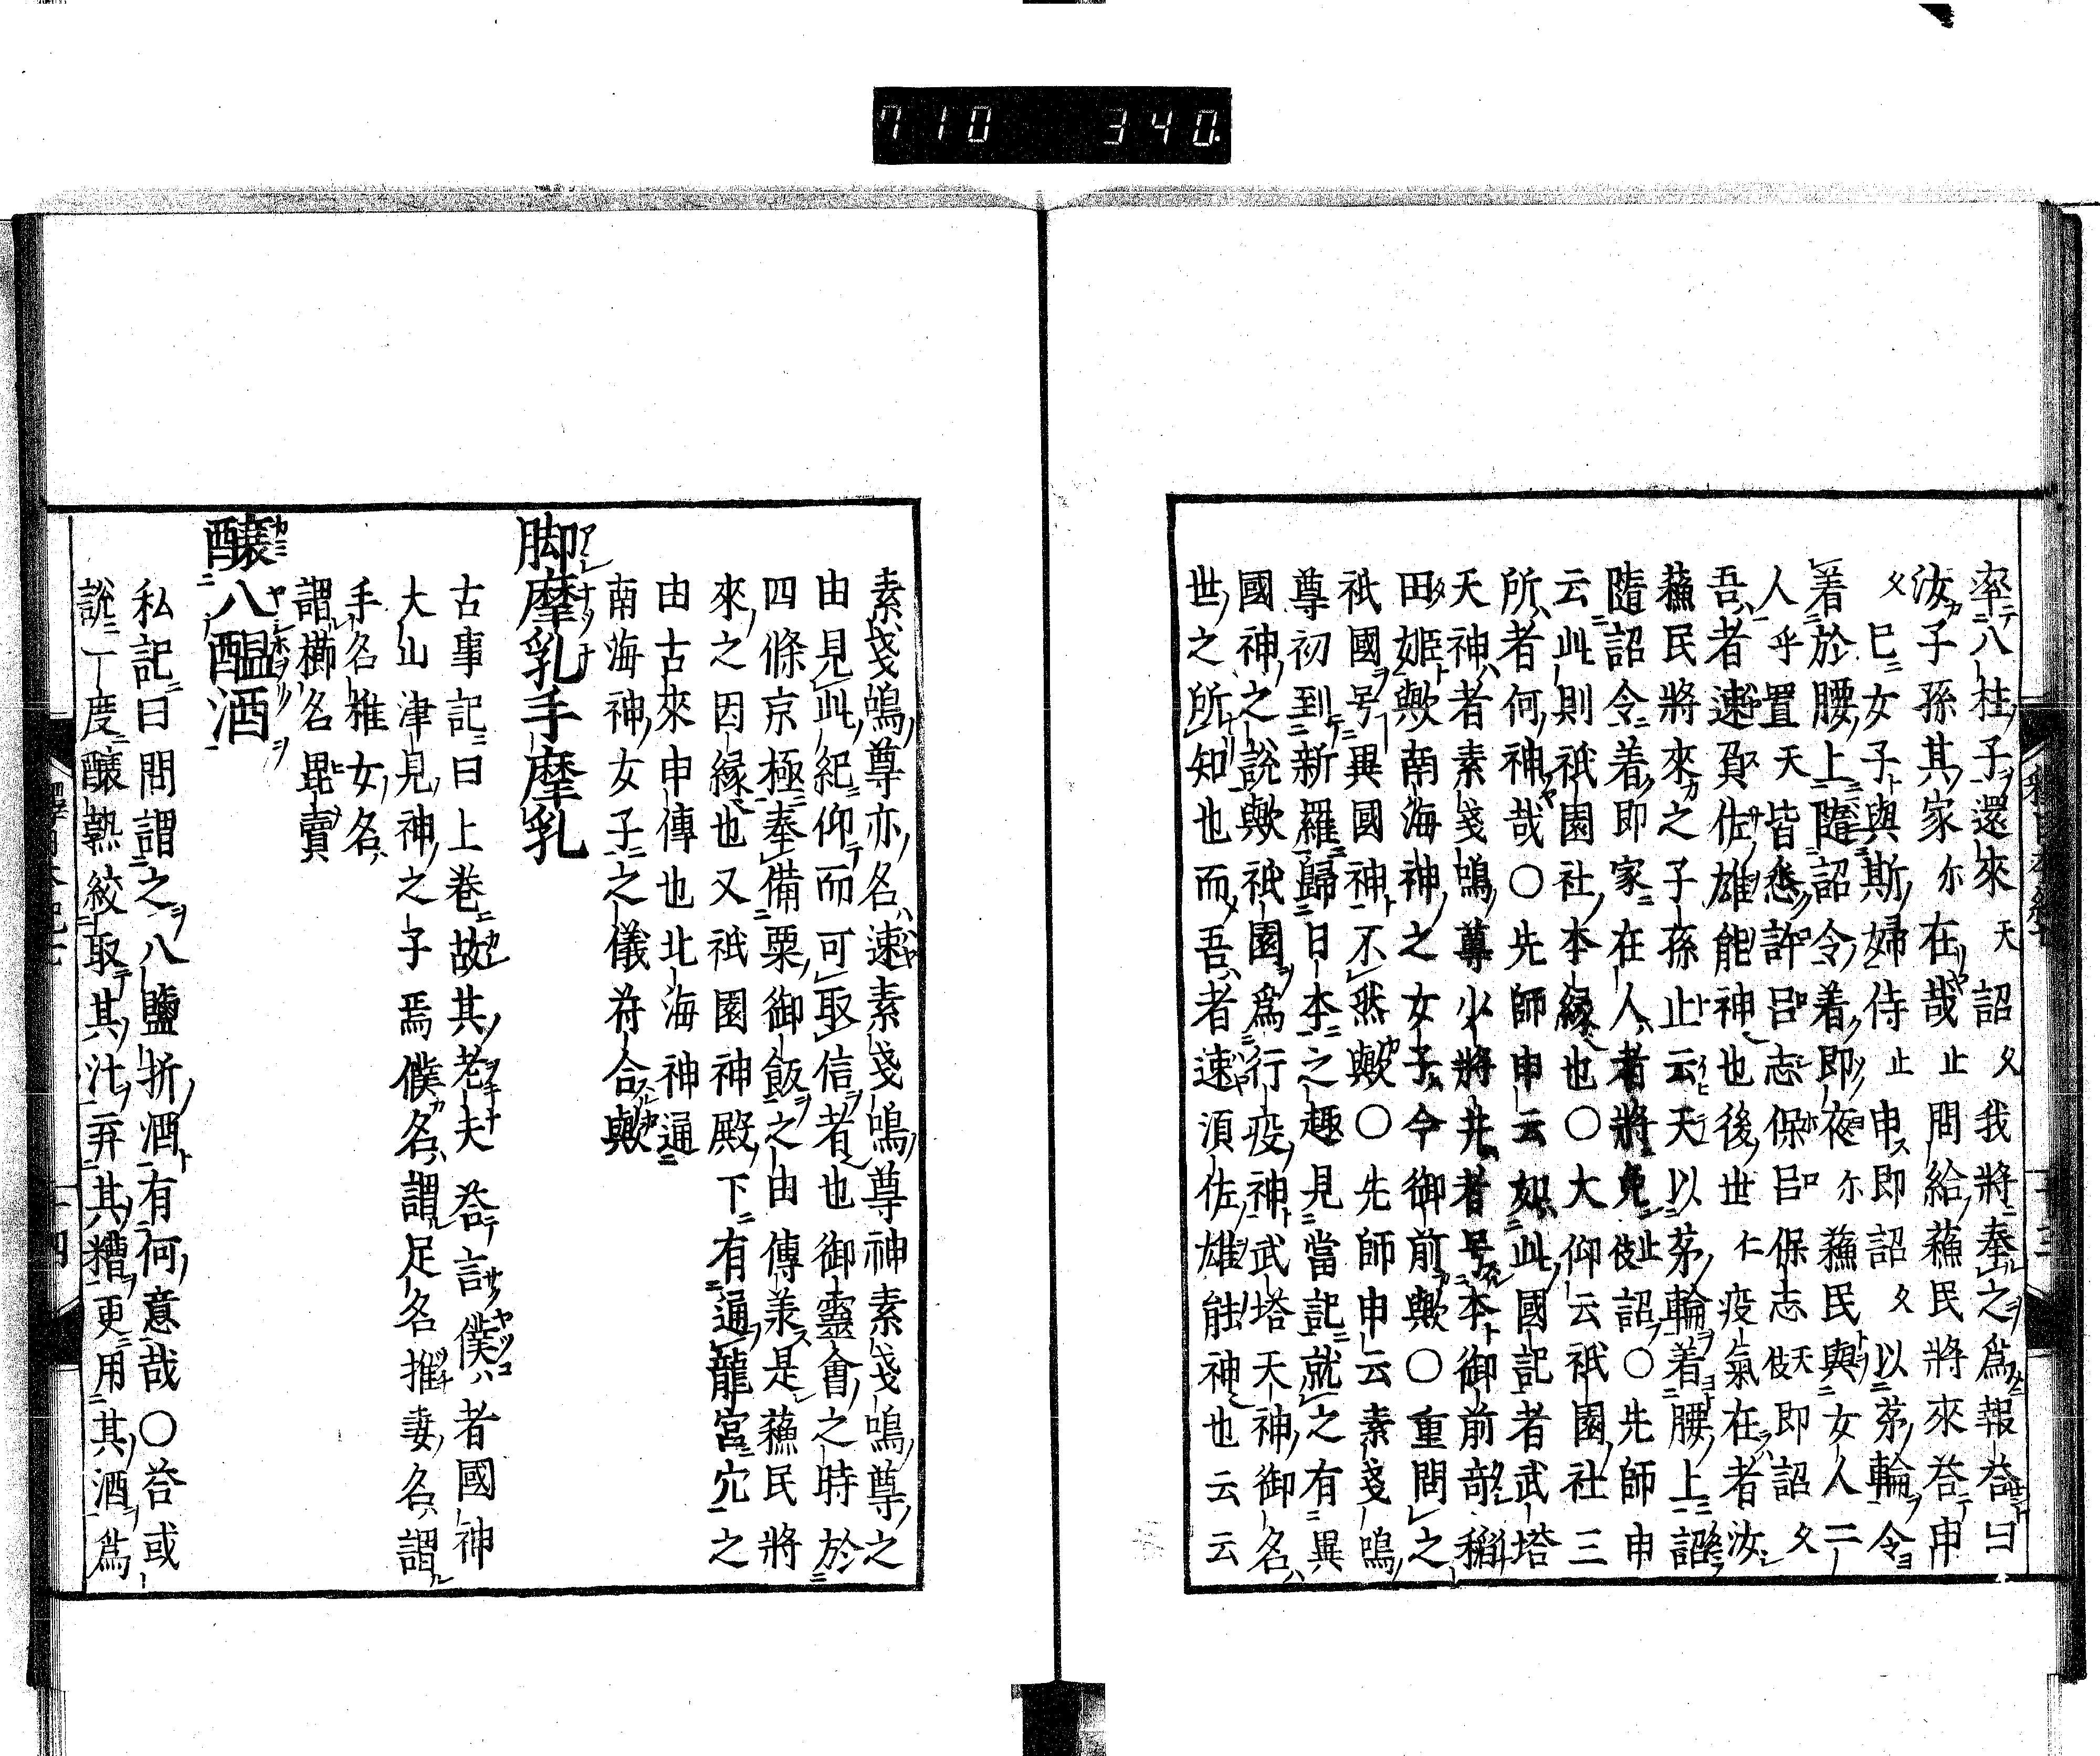 710 340
率八柱子還來天詔久我將奉之爲報荅曰
汝子孫其家尓在哉止問給蘓民將來荅申
久巳女子與斯婦侍止申即詔久以茅輪令
着於腰上隨詔令着即夜尓蘓民與女人二
人乎置天皆悉許呂志保呂保志伎天即詔久
吾者速須佐雄能神也後世仁疫氣在者汝
蘓民將來之子孫止云天以茅輪着腰上詔
隨詔令着即家在人者將免止伎詔○先師申
云此則祇園社本縁也○大仰云祇園社三
所者何神哉○先師申云如此國記者武塔
天神者素戔嗚尊少將井者号本御前竒稻
田姬歟南海神之女子今御前歟○重問之
祇國号異國神不然歟○先師申云素戔嗚
尊初到新羅歸日本之趣見當記就之有異
國神之說歟祇園爲行疫神武塔天神御名
世之所知也而吾者速湏佐雄能神也云云
素戔嗚尊亦名速素戔嗚尊神素戔嗚尊之
由見此紀仰而可取信者也御靈會之時於
四條京極奉備粟御飯之由傳羕是蘓民將
來之因縁也又祇園神殿下有通龍宮穴之
由古來申傳也北海神通
南海神女子之儀符合歟
脚摩乳手摩乳
古事記曰上巻故其老夫荅言僕者國神
大山津見神之子焉僕名謂足名摧妻名謂
手名稚女名
謂櫛名毘賣
釀八醞酒
私記曰問謂之八鹽折酒有何意哉○荅或
說一度釀熟絞取其汁弃其糟更用其酒爲